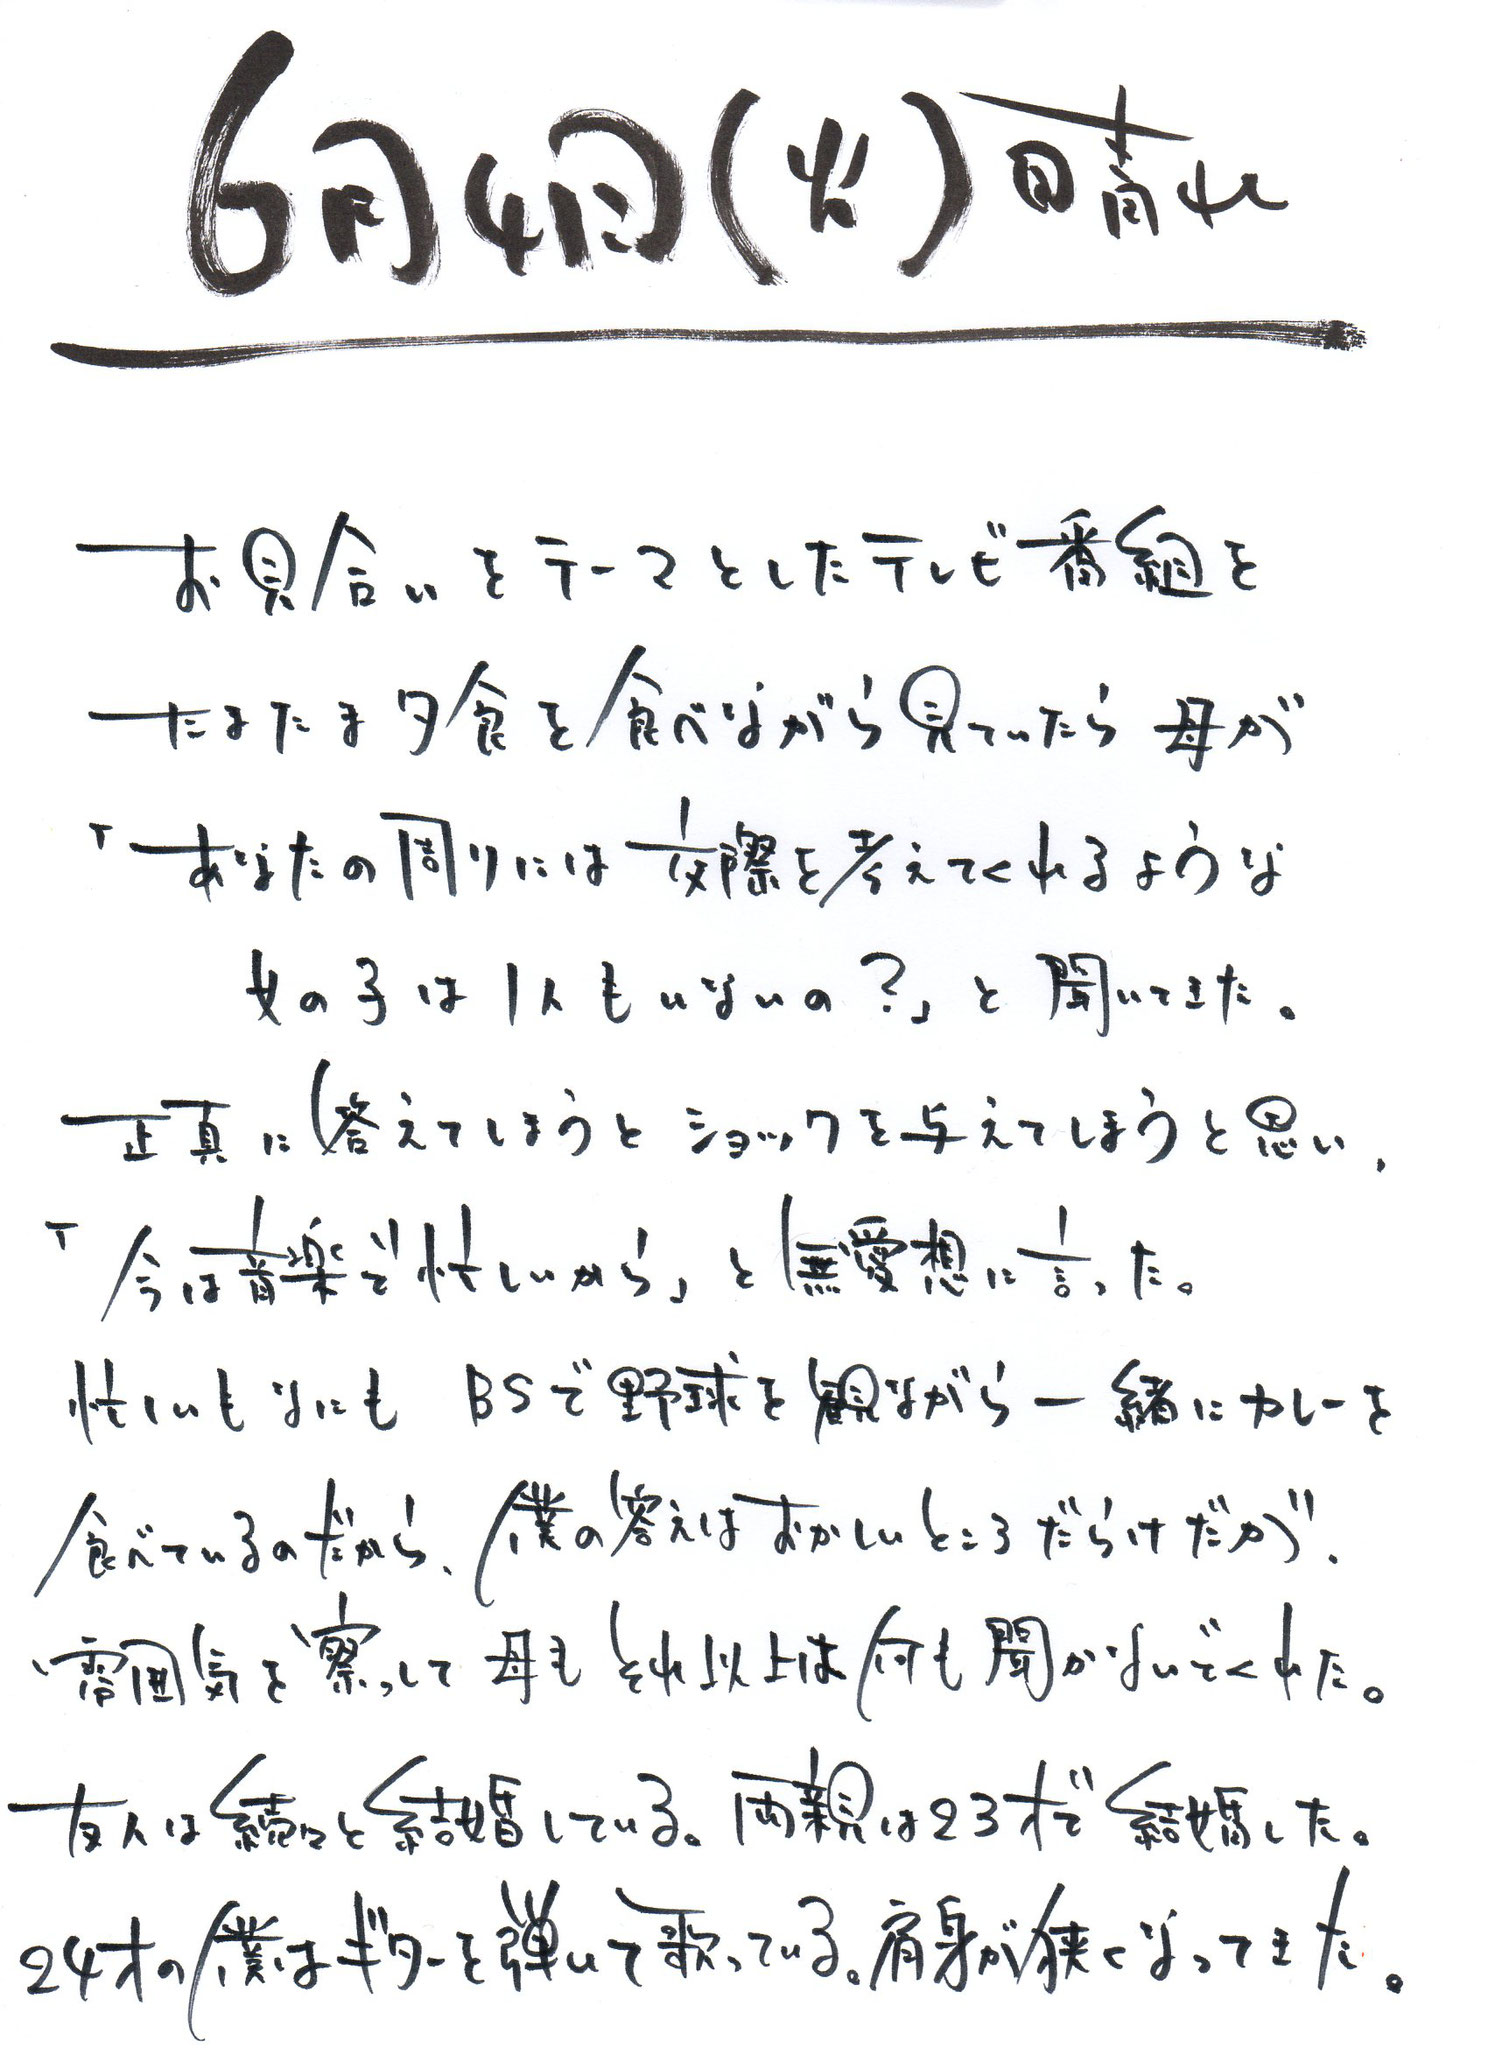 6月4日(火)晴れ
お見合いをテーマとしたテレビ番組を
たまたま夕食を食べながら見ていたら母が
「あなたの周りには交際を考えてくれるような
女の子は1人もいないの?」と聞いてきた。
正直に答えてしまうとショックを与えてしまうと思い、
「今は音楽で忙しいから」と無愛想に言った。
忙しいもなにもBSで野球を観ながら一緒にカレーを
食べているのだから、僕の答えはおかしいところだらけだが、
雰囲気を察っして母もそれ以上は何も聞かないでくれた。
友人は続々と結婚している。両親は23才で結婚した。
24才の僕はギターを弾いて歌っている。肩身が狭くなってきた。